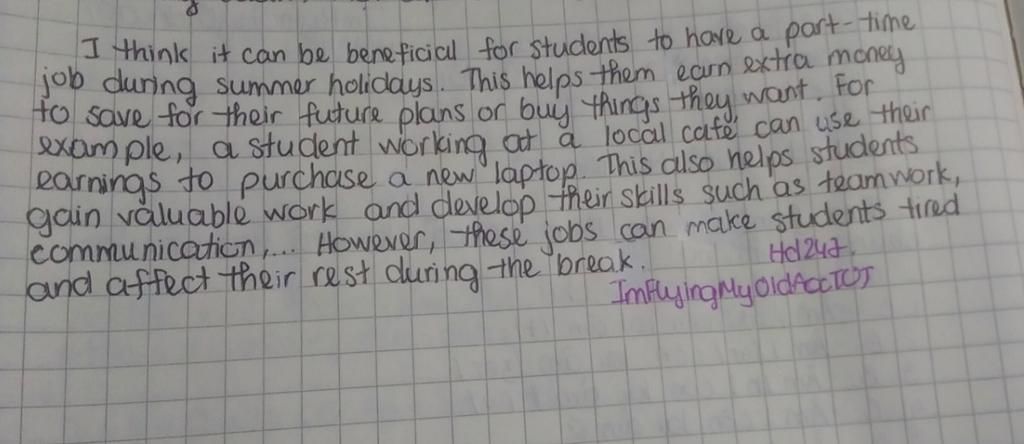 I think it can be beneficial for students to have a part-time
job during summer holidays. This helps them earn extra money
to save for their future plans or buy things they want. For
example, a student working at a local café can use their
earnings to purchase a new laptop. This also helps students
gain valuable work and develop their skills such as teamwork,
communication,... However, these jobs can make students tired
and affect their rest during the break.
Hd247.
ImFlyingMyOldAccTCT